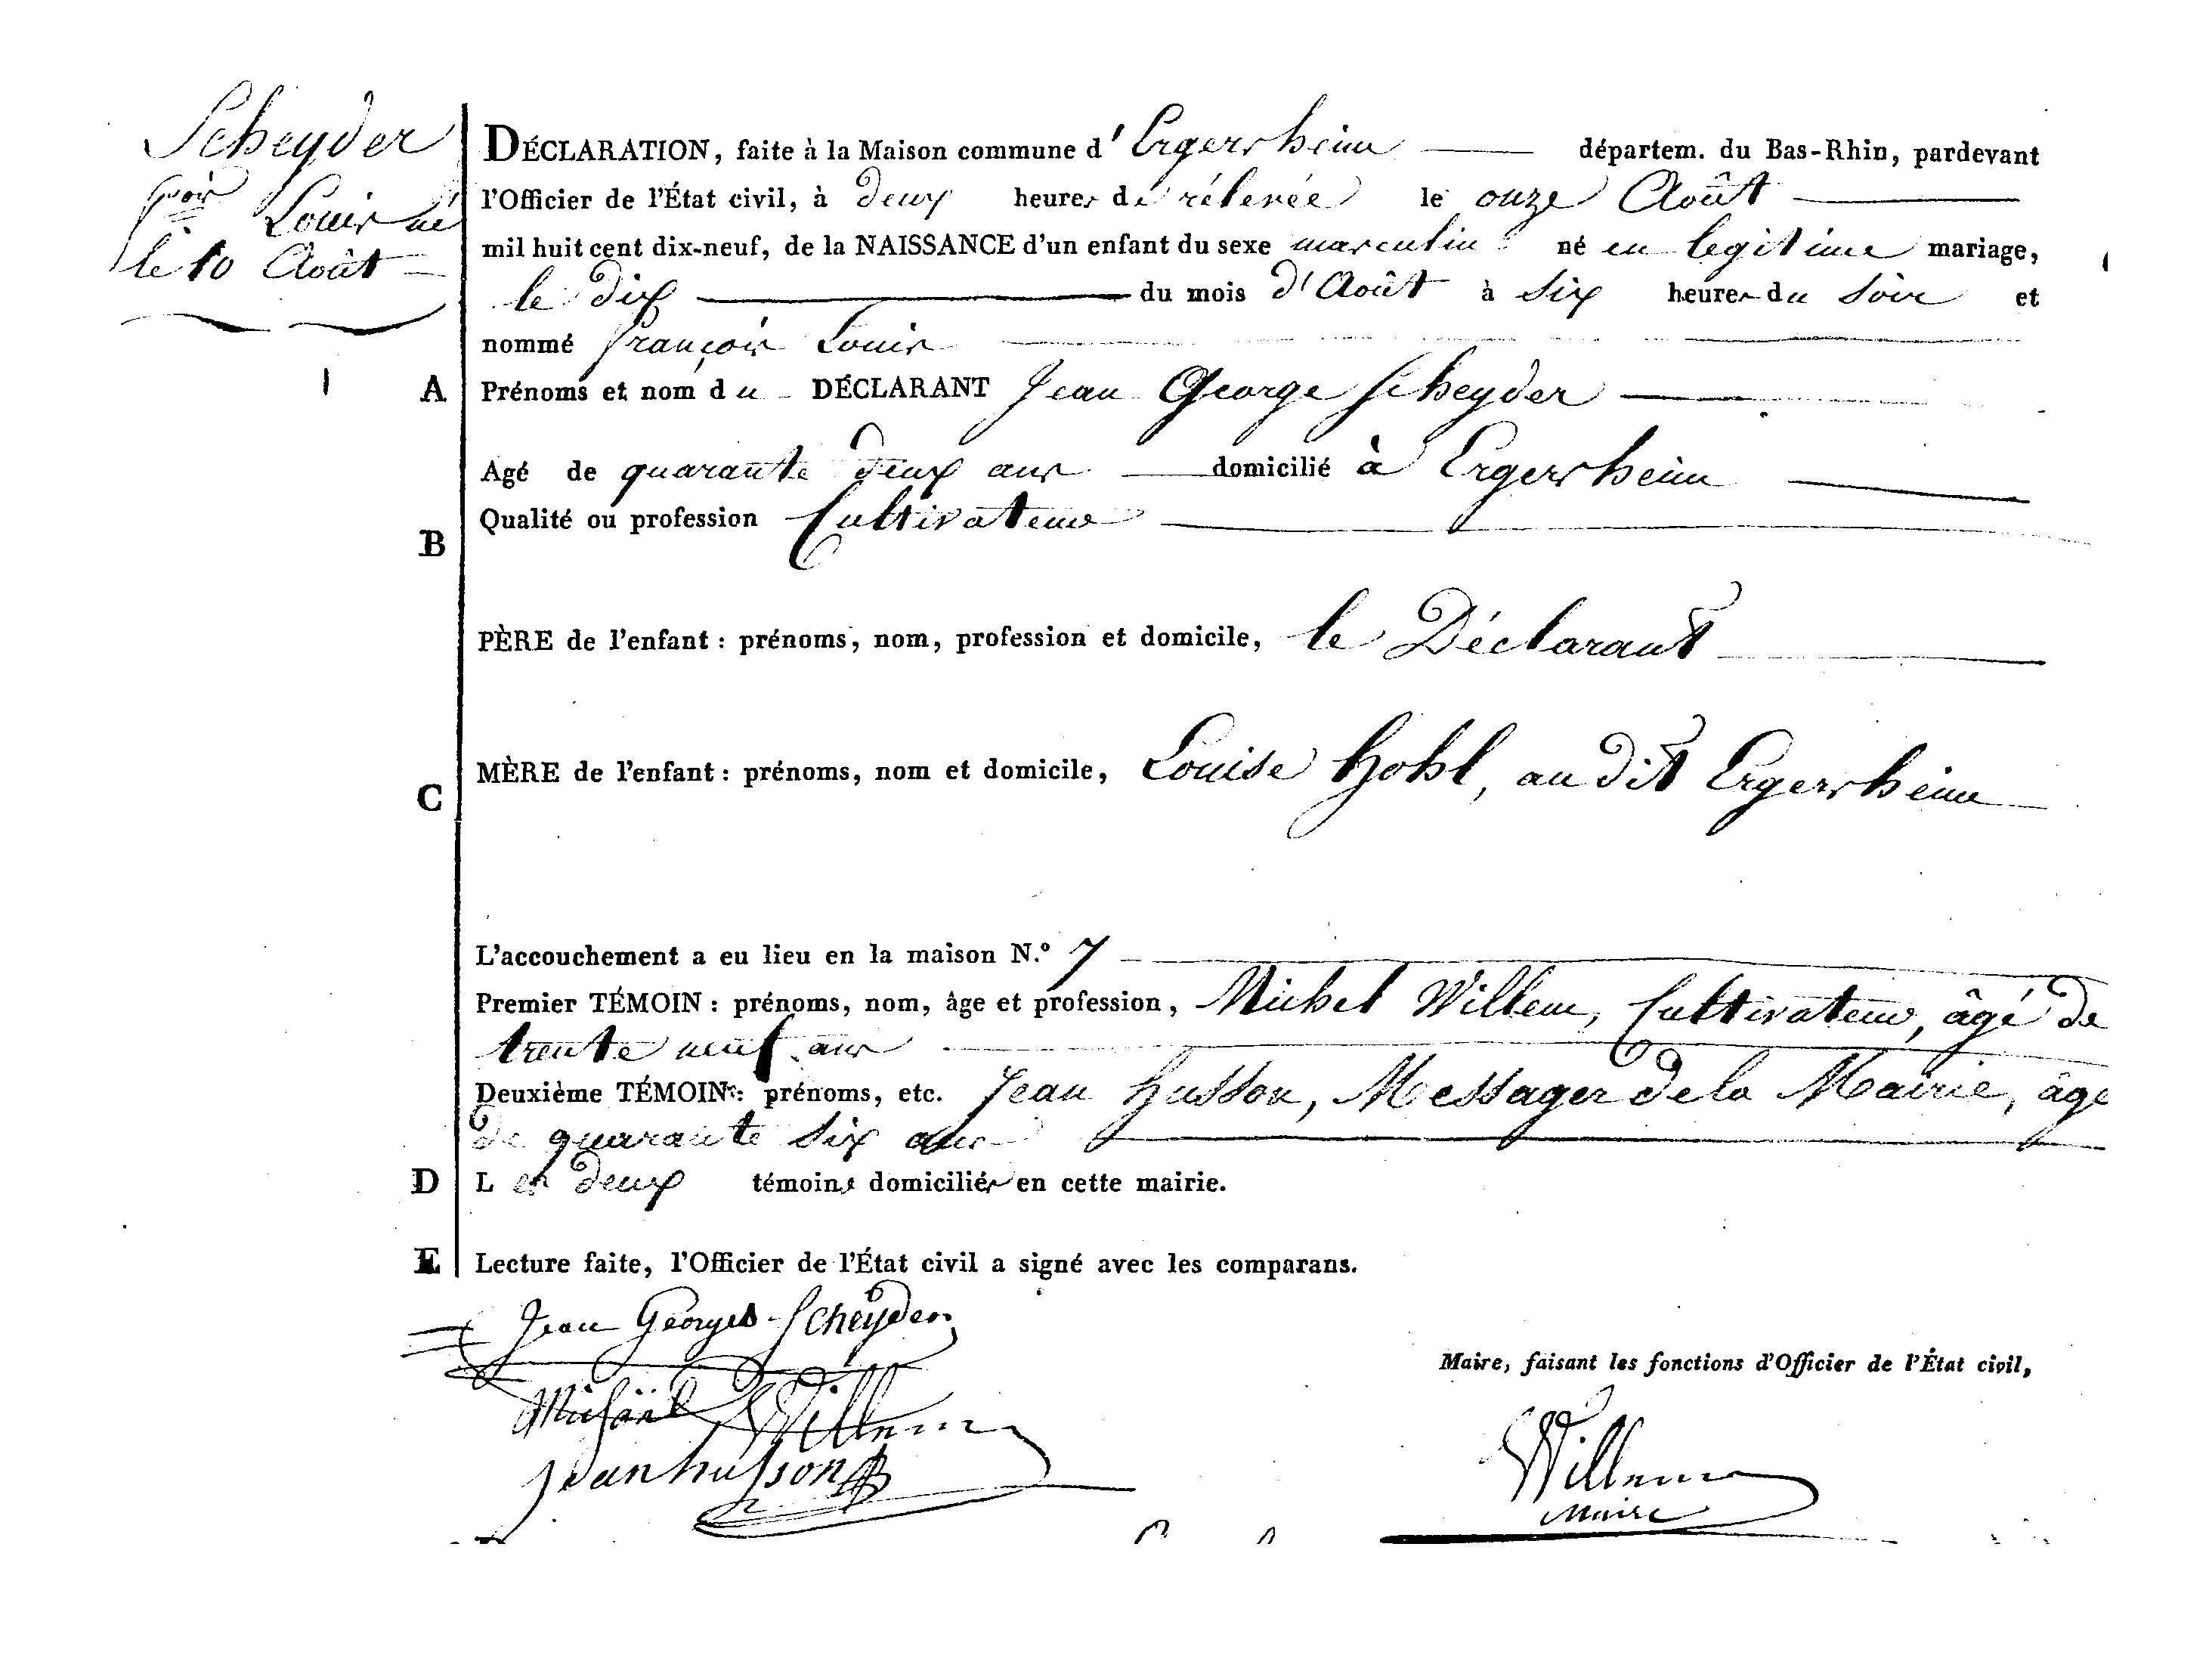 Scheyder
fçois Louis né
le 10 Août
DÉCLARATION, faite à la Maison commune d'Ergersheim départem. du Bas-Rhin, pardevant
l'Officier de l'État civil, à deux heures de rélevée le onze Août
mil huit cent dix-neuf, de la NAISSANCE d'un enfant du sexe masculin né en legitime mariage,
le dix du mois d'Août à six heures du soir et
nommé françois Louis
A Prénoms et nom du DÉCLARANT Jean George Scheyder
Agé de quarante deux ans domicilié à Ergersheim
Qualité ou profession Cultivateur
B
PÈRE de l'enfant : prénoms, nom, profession et domicile, le Déclarant
MÈRE de l'enfant : prénoms, nom et domicile, Louise Hohl, au dit Ergersheim
C
L'accouchement a eu lieu en la maison N.º 7
Premier TÉMOIN : prénoms, nom, âge et profession, Michel Willem, Cultivateur, âgé de
trente neuf ans
Deuxième TÉMOIN : prénoms, etc. Jean Husson, Messager de la Mairie, âgé
de quarante six ans
D Les deux témoins domiciliés en cette mairie.
E Lecture faite, l'Officier de l'État civil a signé avec les comparans.
Jean Georges Scheÿder
Maire, faisant les fonctions d'Officier de l'État civil,
Michäel Willem
Jean husson
Willem
Maire